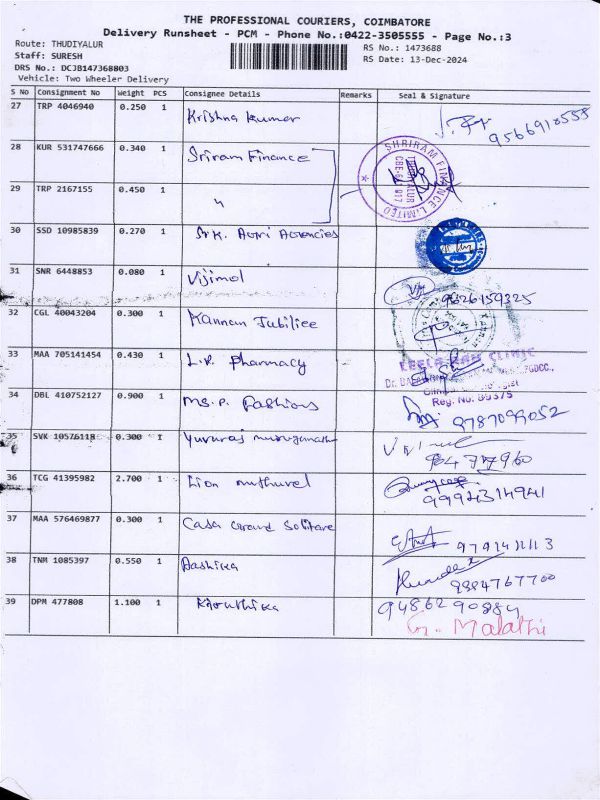 THE PROFESSIONAL COURIERS, COIMBATORE
Delivery Runsheet - PCM - Phone No.:0422-3505555 - Page No.:3
Route: THUDIYALUR RS No.: 1473688
Staff: SURESH RS Date: 13-Dec-2024
DRS No.: DCJB147368803
Vehicle: Two Wheeler Delivery
S No Consignment No Weight PCS Consignee Details Remarks Seal & Signature
27 TRP 4046940 0.250 1 Krishna Kumar 9566918555
28 KUR 531747666 0.340 1 Sriram Finance SHRIRAM FINANCE LIMITED
29 TRP 2167155 0.450 1 "
30 SSD 10985839 0.270 1 Agencies
31 SNR 6448853 0.080 1 Vijimol 9626159325
32 CGL 40043204 0.300 1 Kannan Jubiliee
33 MAA 705141454 0.430 1 L.R. Pharmacy LEELA RAM CLINIC
Reg. No: 89375
34 DBL 410752127 0.900 1 MS.P. Fashions 9787099052
35 SVK 10576118 0.300 1 Yuvaraj
36 TCG 41395982 2.700 1 Lion muthuvel 9994314941
37 MAA 576469877 0.300 1 Casa Grand Solitare
38 TNM 1085397 0.550 1 Dashika 9884767700
39 DPM 477808 1.100 1 Kiruthika 9486290884
G. Malathi